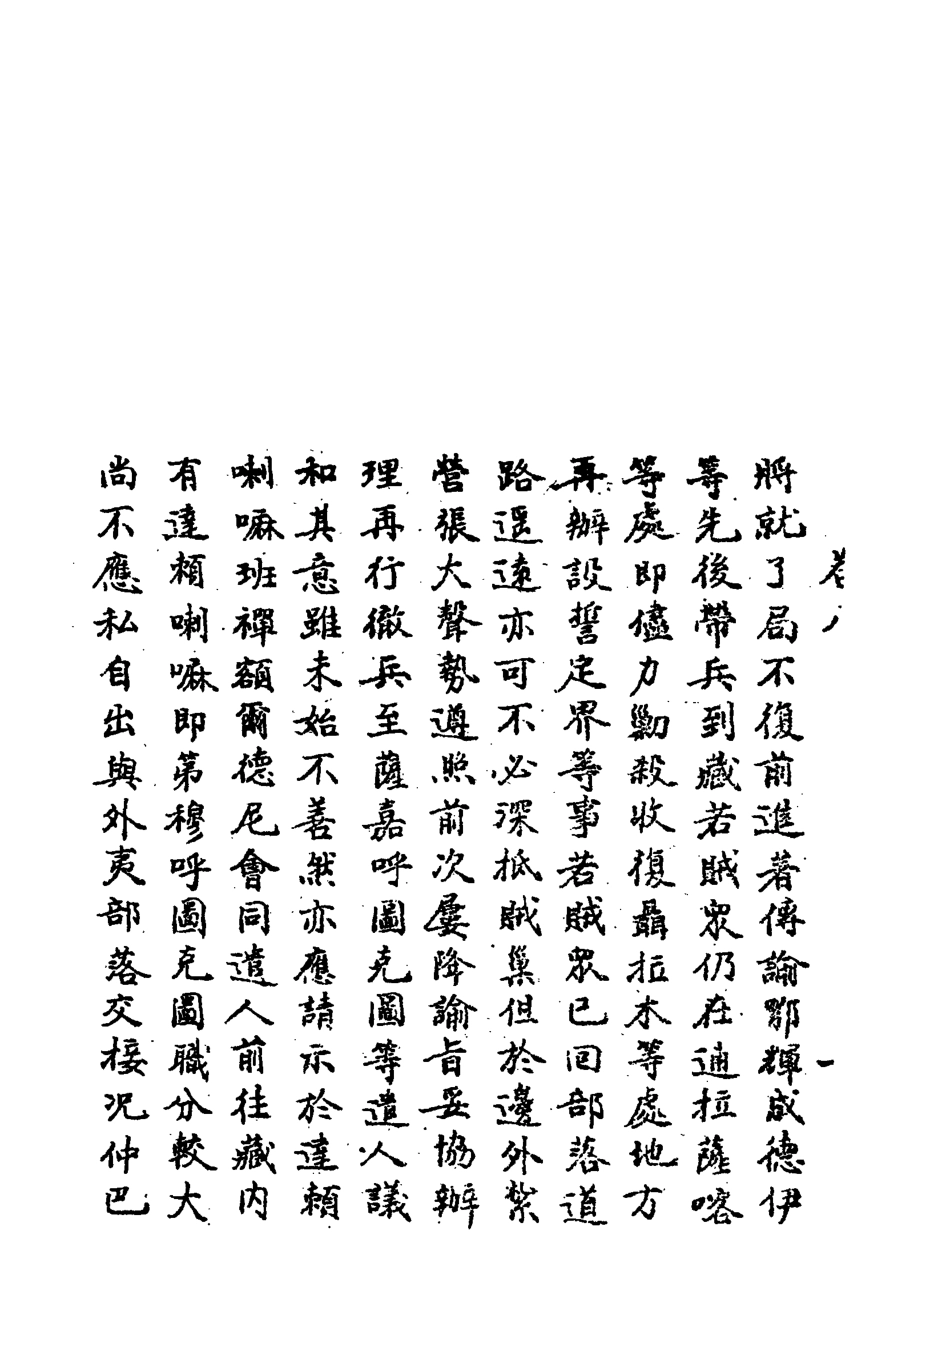 卷八 一
將就了局不復前進著傳諭鄂輝成德伊
等先後帶兵到藏若賊眾仍在通拉薩喀
等處即儘力勦殺收復聶拉木等處地方
再辦設誓定界等事若賊眾已回部落道
路遥遠亦可不必深抵賊巢但於邊外紮
營張大聲勢遵照前次屡降諭旨妥協辦
理再行徹兵至薩嘉呼圖克圖等遣人議
和其意雖未始不善然亦應請示於達賴
喇嘛班禪額爾德尼會同遣人前往藏內
有達賴喇嘛即第穆呼圖克圖職分較大
尚不應私自出與外夷部落交接况仲巴